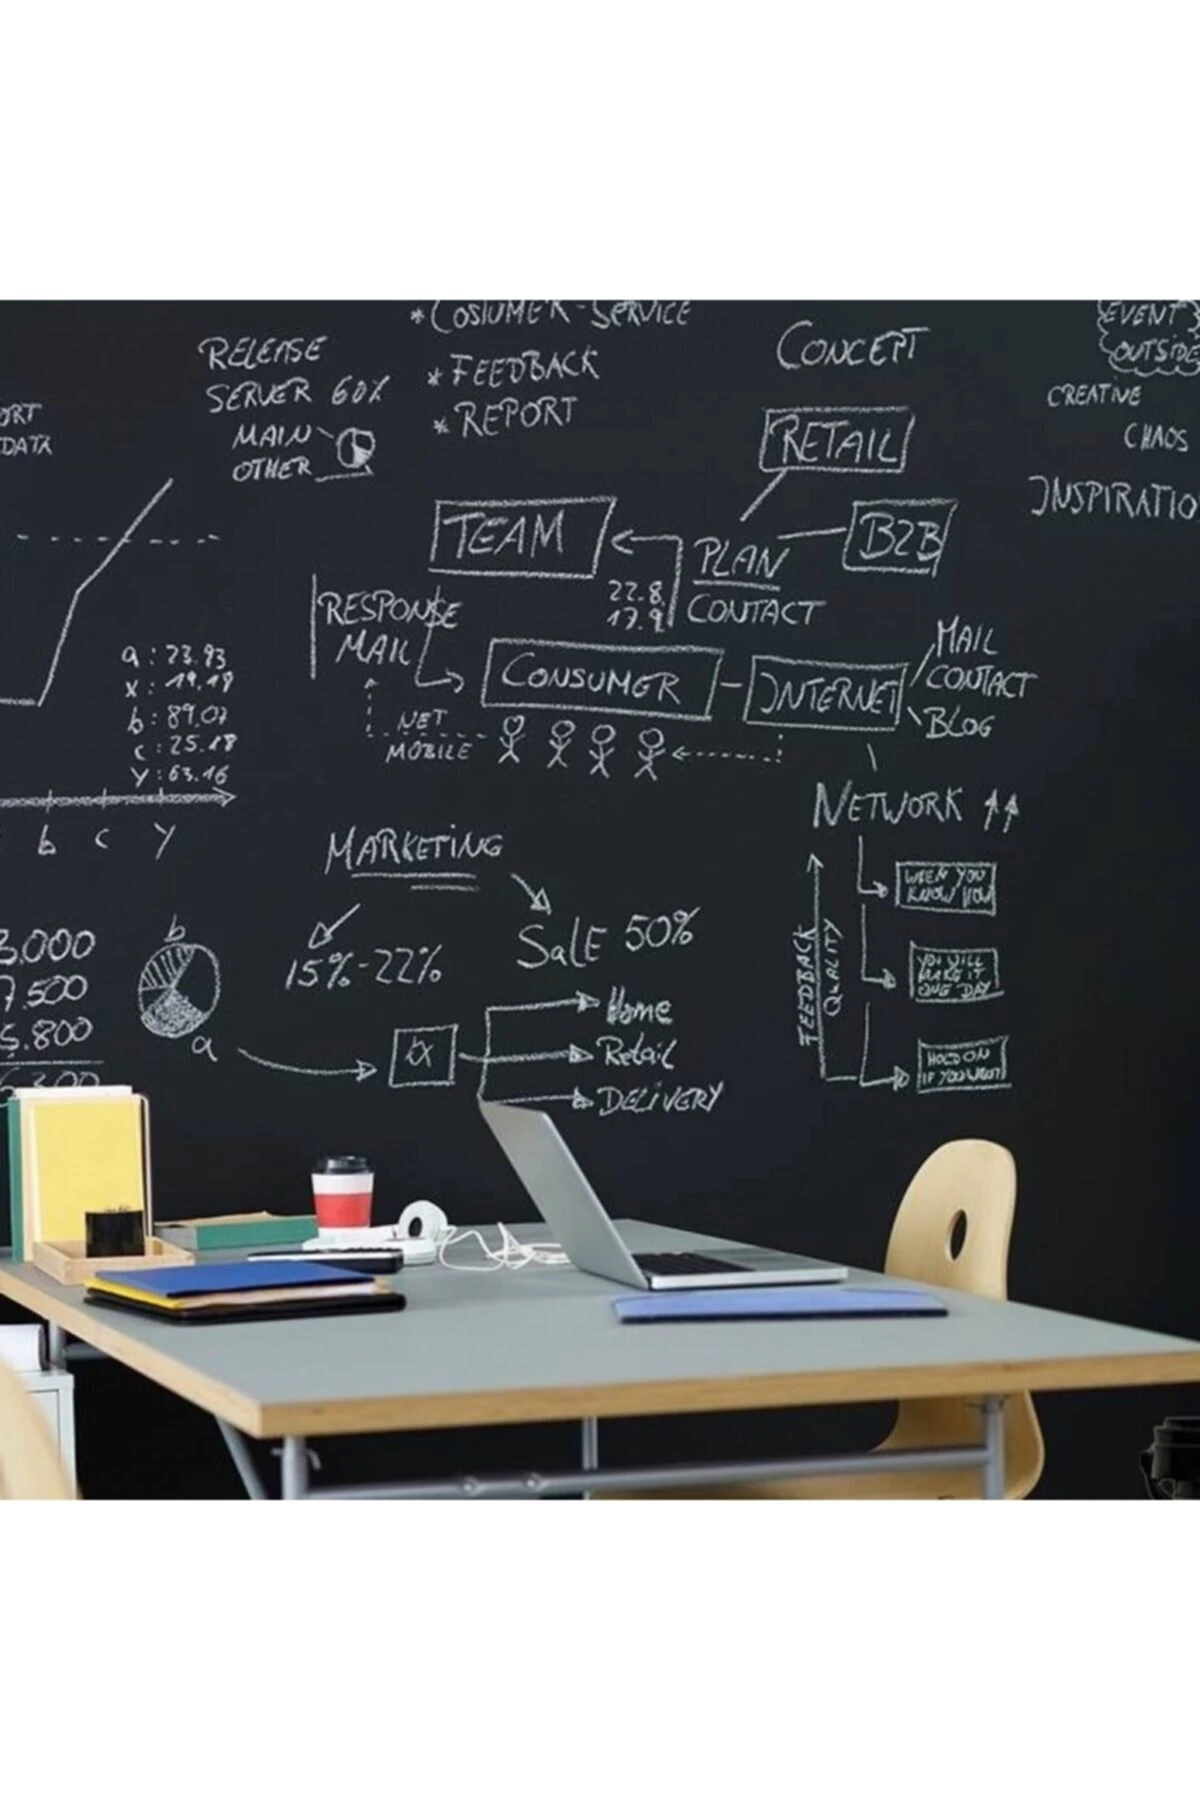 *COSTUMER-SERVICE
*FEEDBACK
*REPORT
RELEASE
SERVER 60%
MAIN
OTHER
DATA
CONCEPT
RETAIL
B2B
PLAN
CONTACT
TEAM
22.8.
17.9.
EVENT
OUTSIDE
CREATIVE
CHAOS
INSPIRATIO
RESPONSE
MAIL
CONSUMER
INTERNET
MAIL
CONTACT
BLOG
NET
MOBILE
a: 23.93
x: 19.19
b: 89.07
c: 25.18
y: 63.16
b c y
NETWORK
WHEN YOU
KNOW HOW
YOU WILL
MAKE IT
ONE DAY
HOLD ON
IF YOU WANT
FEEDBACK
QUALITY
MARKETING
15%-22%
SALE 50%
Home
Retail
DELIVERY
.000
.500
5.800
b
a